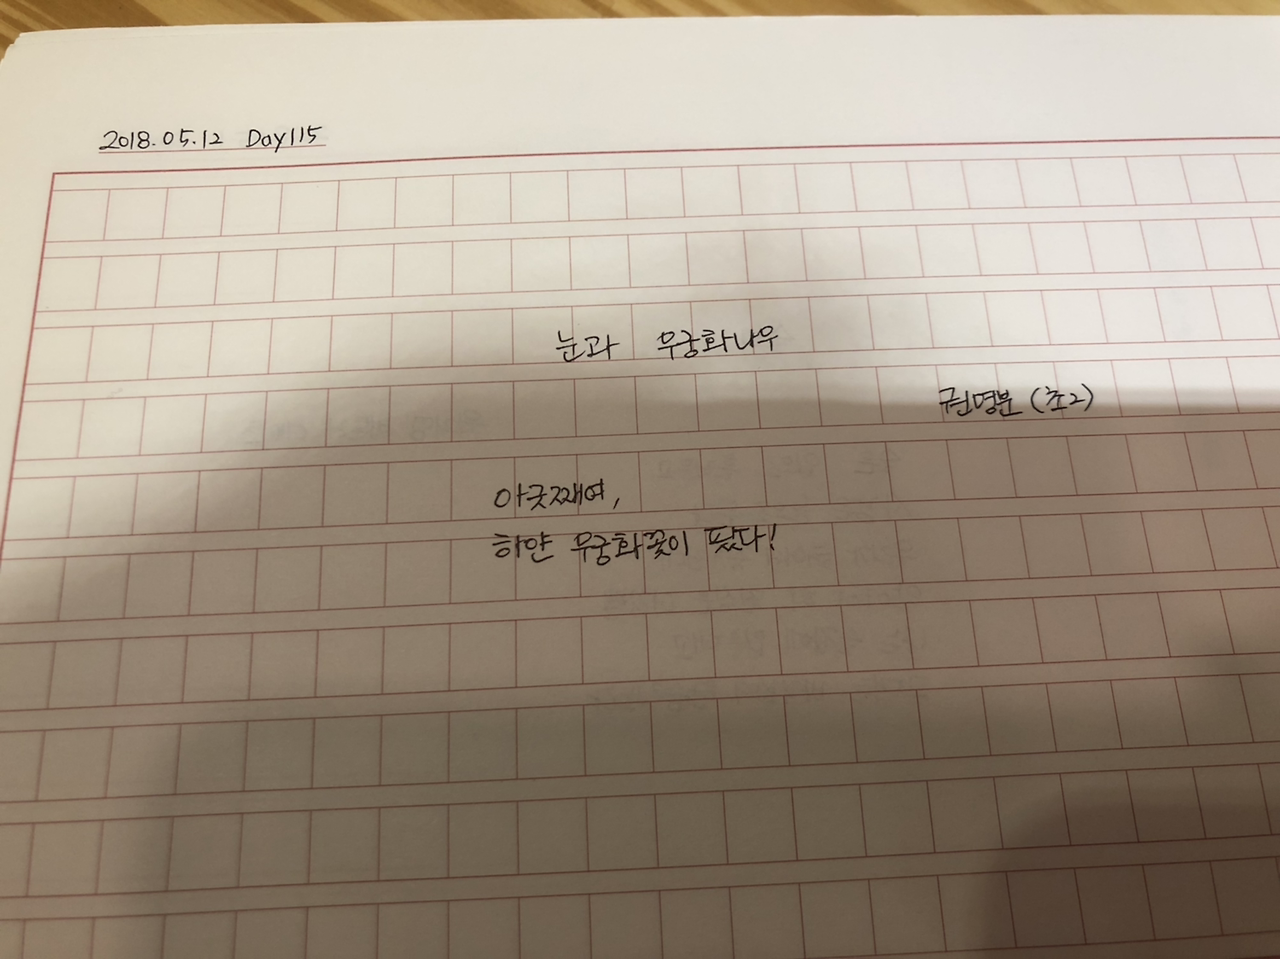 2018.05.12 Day115
눈과 무궁화나무
권명분 (초2)
아굿째여,
하얀 무궁화꽃이 폈다!